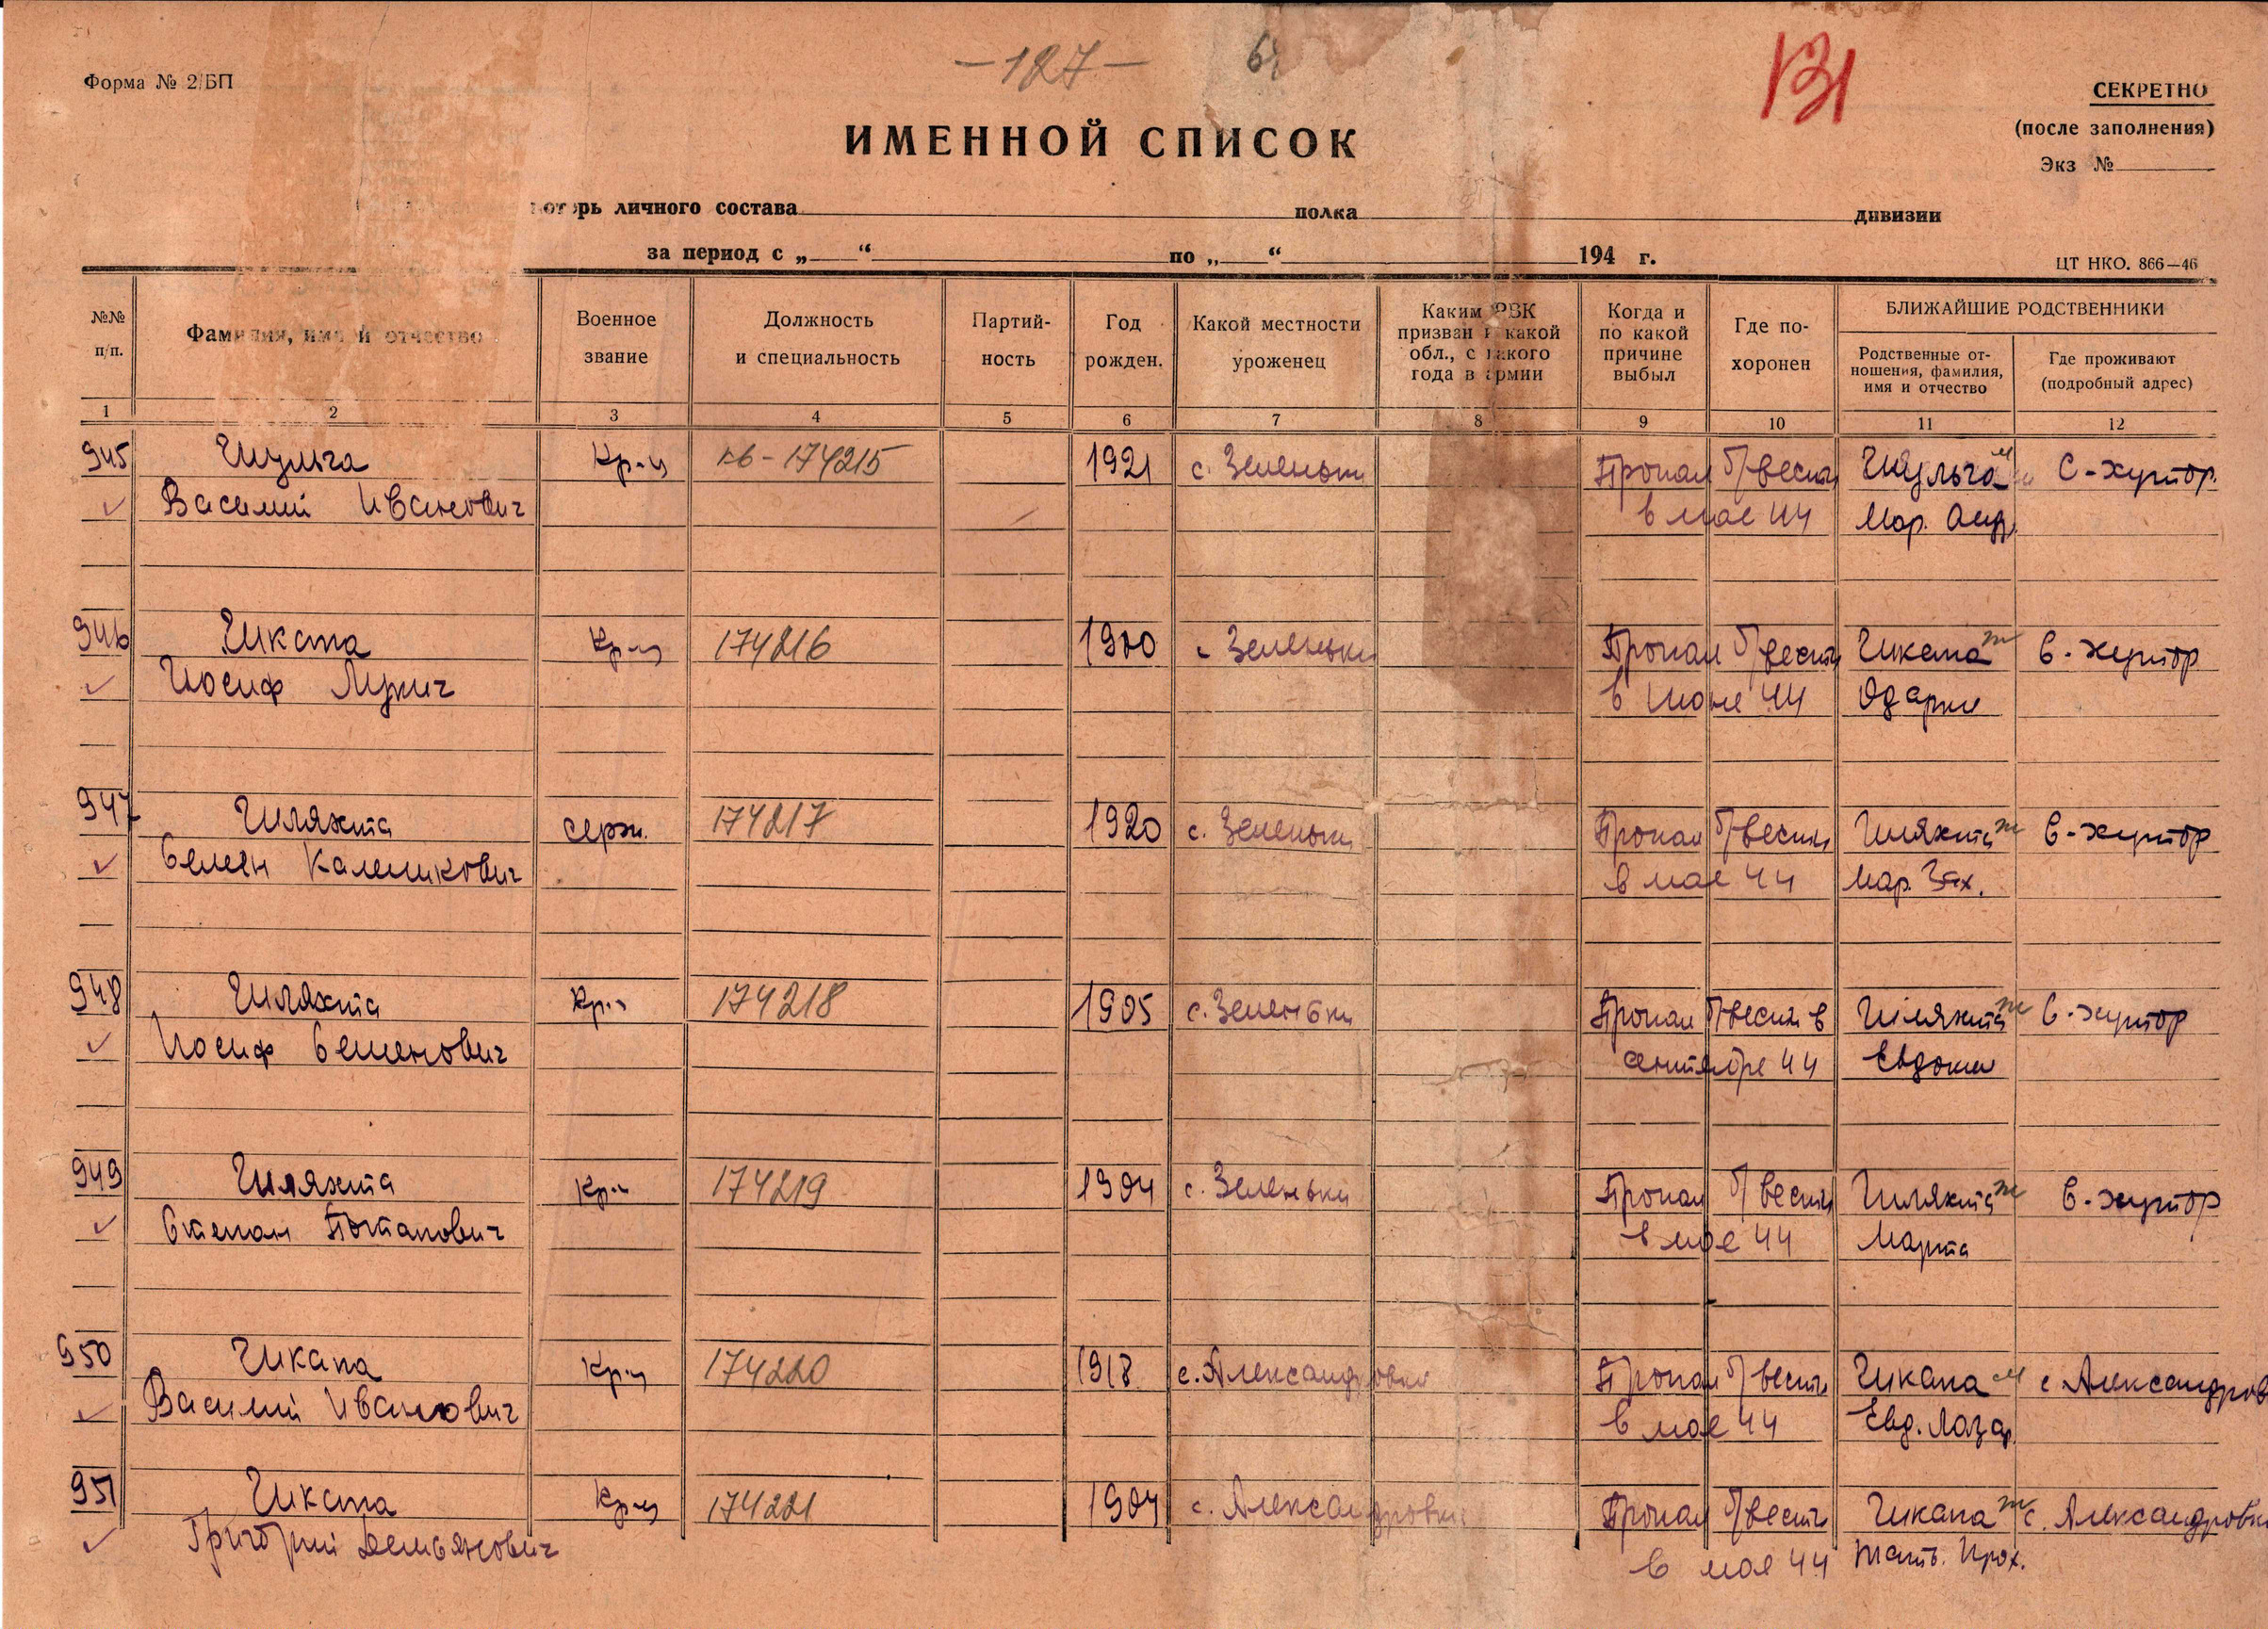 - 127 -
131
Форма № 2/БП
СЕКРЕТНО
(после заполнения)
Экз №
ИМЕННОЙ СПИСОК
потерь личного состава полка дивизии
за период с „ “ по „ “ 194 г.
ЦТ НКО. 866—46
№№ п/п.
Фамилия, имя и отчество
Военное звание
Должность и специальность
Партий-ность
Год рожден.
Какой местности уроженец
Каким РВК призван и какой обл., с какого года в армии
Когда и по какой причине выбыл
Где по-хоронен
БЛИЖАЙШИЕ РОДСТВЕННИКИ
Родственные от-ношения, фамилия, имя и отчество
Где проживают (подробный адрес)
1 2 3 4 5 6 7 8 9 10 11 12
945 Шульга Кр-ц кв-174215 1921 с. Зеленьки Пропал б/вести Шульга м С-хутор.
Василий Иванович в мае 44 Мар. Анд.
946 Шкапа Кр-ц 174216 1900 с Зеленьки Пропал б/вести Шкапа ж С-хутор
Иосиф Лукич в июне 44 Одарка
947 Шляхта серж. 174217 1920 с. Зеленьки Пропал б/вести Шляхта ж С-хутор
Семен Каленикович в мае 44 Мар. Зах.
948 Шляхта Кр-ц 174218 1905 с. Зеленьки Пропал б/вести в Шляхта ж С-хутор
Иосиф Семенович сентябре 44 Евдокия
949 Шляхта Кр-ц 174219 1904 с. Зеленьки Пропал б/вести Шляхта ж С-хутор
Степан Потапович в мае 44 Марта
950 Шкапа Кр-ц 174220 1918 с. Александровка Пропал б/вести Шкапа м с Александров
Василий Иванович в мае 44 Евд. Лазар.
951 Шкапа Кр-ц 174221 1904 с. Александровка Пропал б/вести Шкапа ж с. Александровка
Григорий Демьянович в мае 44 Прох.